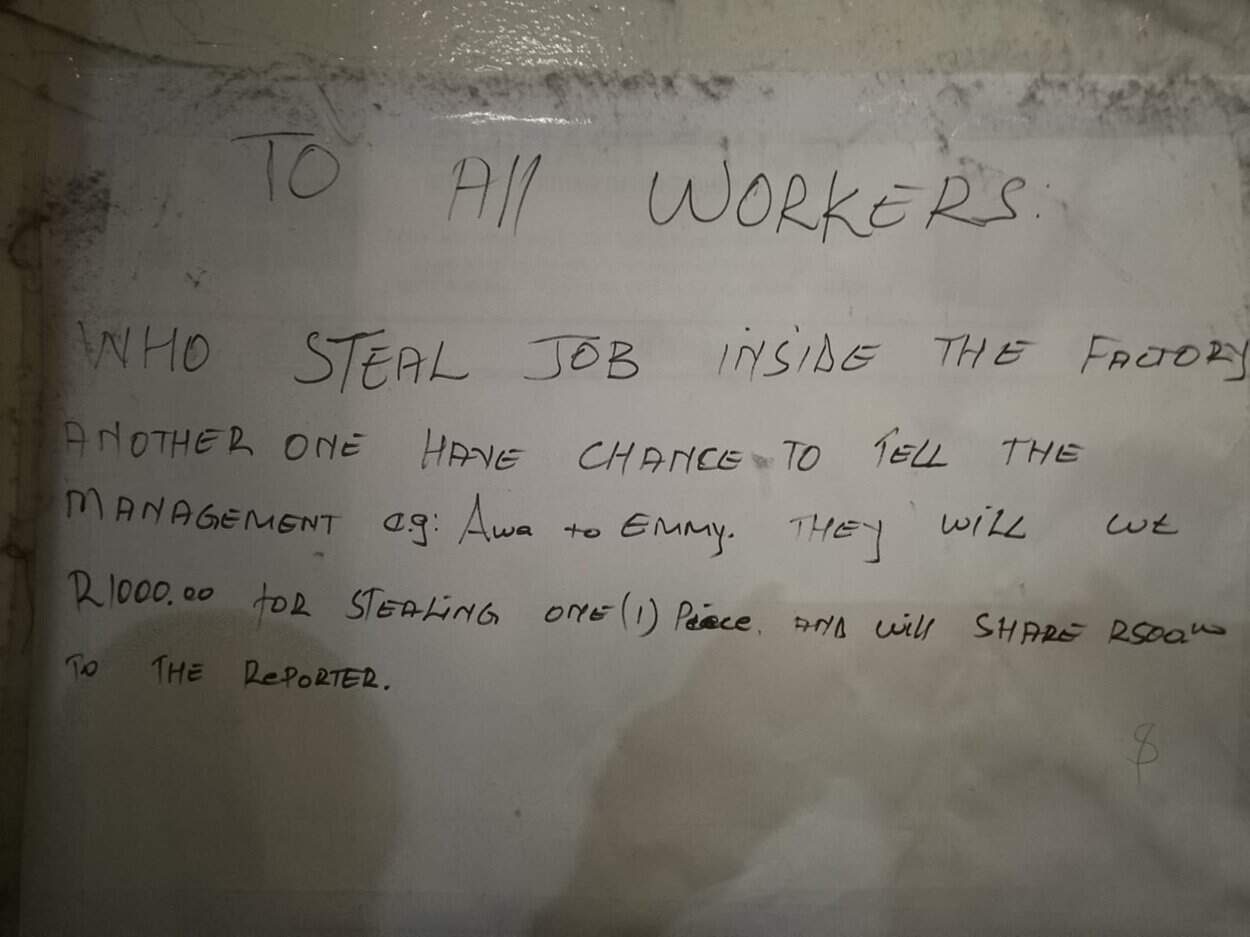 TO All WORKERS:
WHO STEAL JOB INSIDE THE FACTORY
ANOTHER ONE HAVE CHANCE TO TELL THE
MANAGEMENT e.g: Awa to EMMY. THEY WILL
R1000.00 FOR STEALING ONE (1) Piece. AND will SHARE R500.00
TO THE REPORTER.
$